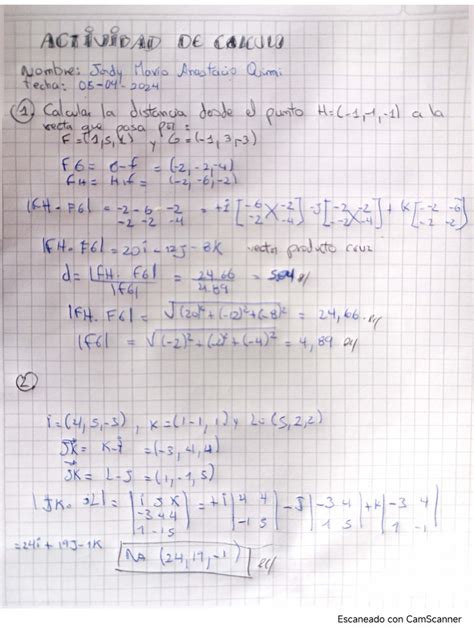 ACTIVIDAD DE CALCULO
Nombre: Jordy Mario Anastacio Quimi
fecha: 05-04-2024
① Calcular la distancia desde el punto H=(-1,-1,-1) a la
recta que pasa por:
F=(1,5,1) y G=(-1,3,-3)
FG= G-f = (-2,-2,-4)
FH= H-f = (-2,-6,-2)
|FH·FG| = -2 -6 -2 = +i [-6 -2] -j [-2 -2] + K [-2 -6]
-2 -2 -4 -2 -4 -2 -4 -2 -2
|FH·FG| = 20i -12j -8K vector producto cruz
d= |FH·FG| = 24.66 =
|FG| 4.89
|FH·FG| = √(20)²+(-12)²+(-8)² = 24,66
|FG| = √(-2)²+(-2)²+(-4)² = 4,89
②
i=(4,5,-3), K=(1-1,1) y L=(5,2,2)
JK= K-i =(-3,4,4)
JK= L-J =(1,-1,5)
|JK·JL| = |i J K| = +i |4 4| -J |-3 4| +K |-3 4|
-3 4 4 -1 5 1 5 1 -1
1 -1 5
=24i + 19J -1K (24,19,-1)
Escaneado con CamScanner